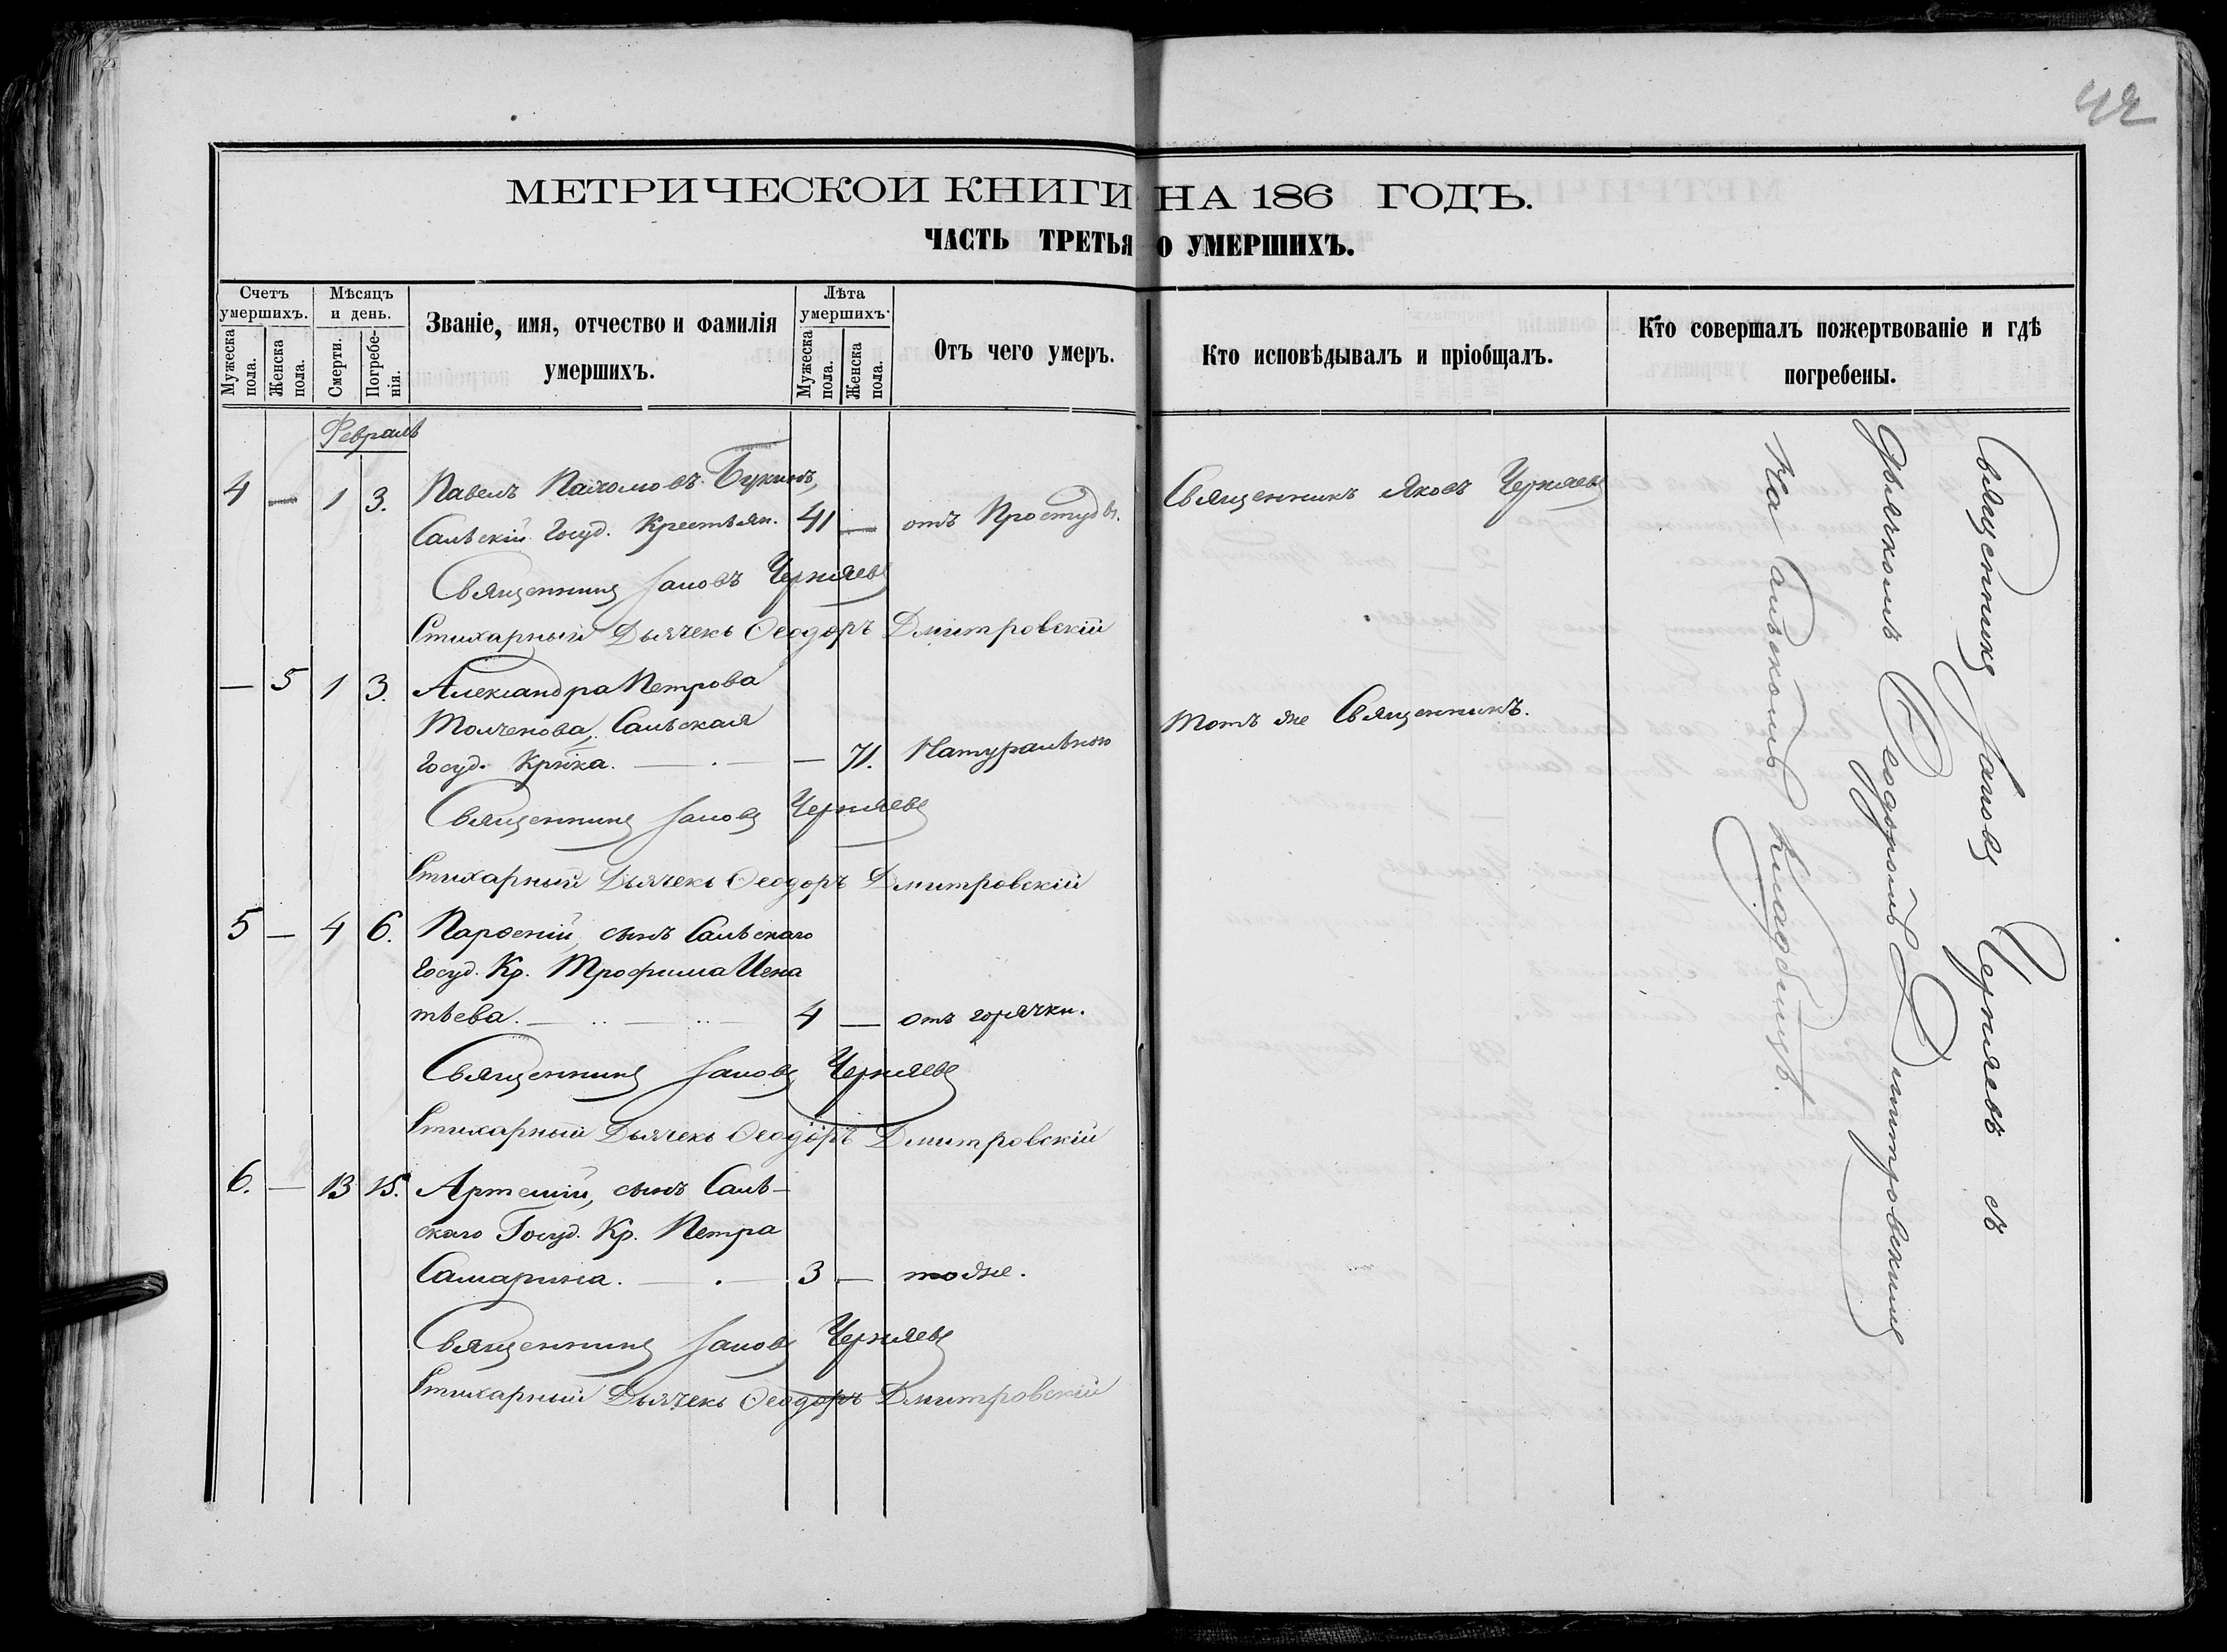 42
МЕТРИЧЕСКОЙ КНИГИ НА 186 ГОДЪ.
ЧАСТЬ ТРЕТЬЯ О УМЕРШИХЪ.
Счетъ умершихъ.
Мужеска пола.
Женска пола.
Мѣсяцъ и день.
Смерти.
Погребе-нія.
Званіе, имя, отчество и фамилія
умершихъ.
Лѣта умершихъ.
Мужеска пола.
Женска пола.
Отъ чего умеръ.
Кто исповѣдывалъ и пріобщалъ.
Кто совершалъ пожертвованіе и гдѣ
погребены.
Февраль
4 — 1 3. Павелъ Пахомовъ Букинъ,
Сальскій Госуд. Крестьян. 41 — отъ Простуды. Священникъ Яковъ Черняевъ
Священникъ Іаковъ Черняевъ
Стихарный Дьячекъ Ѳеодоръ Дмитровскій
— 5 1 3. Александра Петрова
Толченова, Сальская Тотъ же Священникъ.
Госуд. Крнка. — . — — 71. Натуральною
Священникъ Іаковъ Черняевъ
Стихарный Дьячекъ Ѳеодоръ Дмитровскій
5 — 4 6. Парѳеній, сынъ Сальскаго
Госуд. Кр. Трофима Игна
тьева. 4 — отъ горячки.
Священникъ Іаковъ Черняевъ
Стихарный Дьячекъ Ѳеодоръ Дмитровскій
6. — 13 15. Артемій, сынъ Саль-
скаго Госуд. Кр. Петра
Самарина. — . — 3 — тоже.
Священникъ Іаковъ Черняевъ
Стихарный Дьячекъ Ѳеодоръ Дмитровскій
Священникъ Іаковъ Черняевъ съ
Дьячкомъ Ѳеодоромъ Димитровскимъ
На Сальскомъ кладбищѣ.